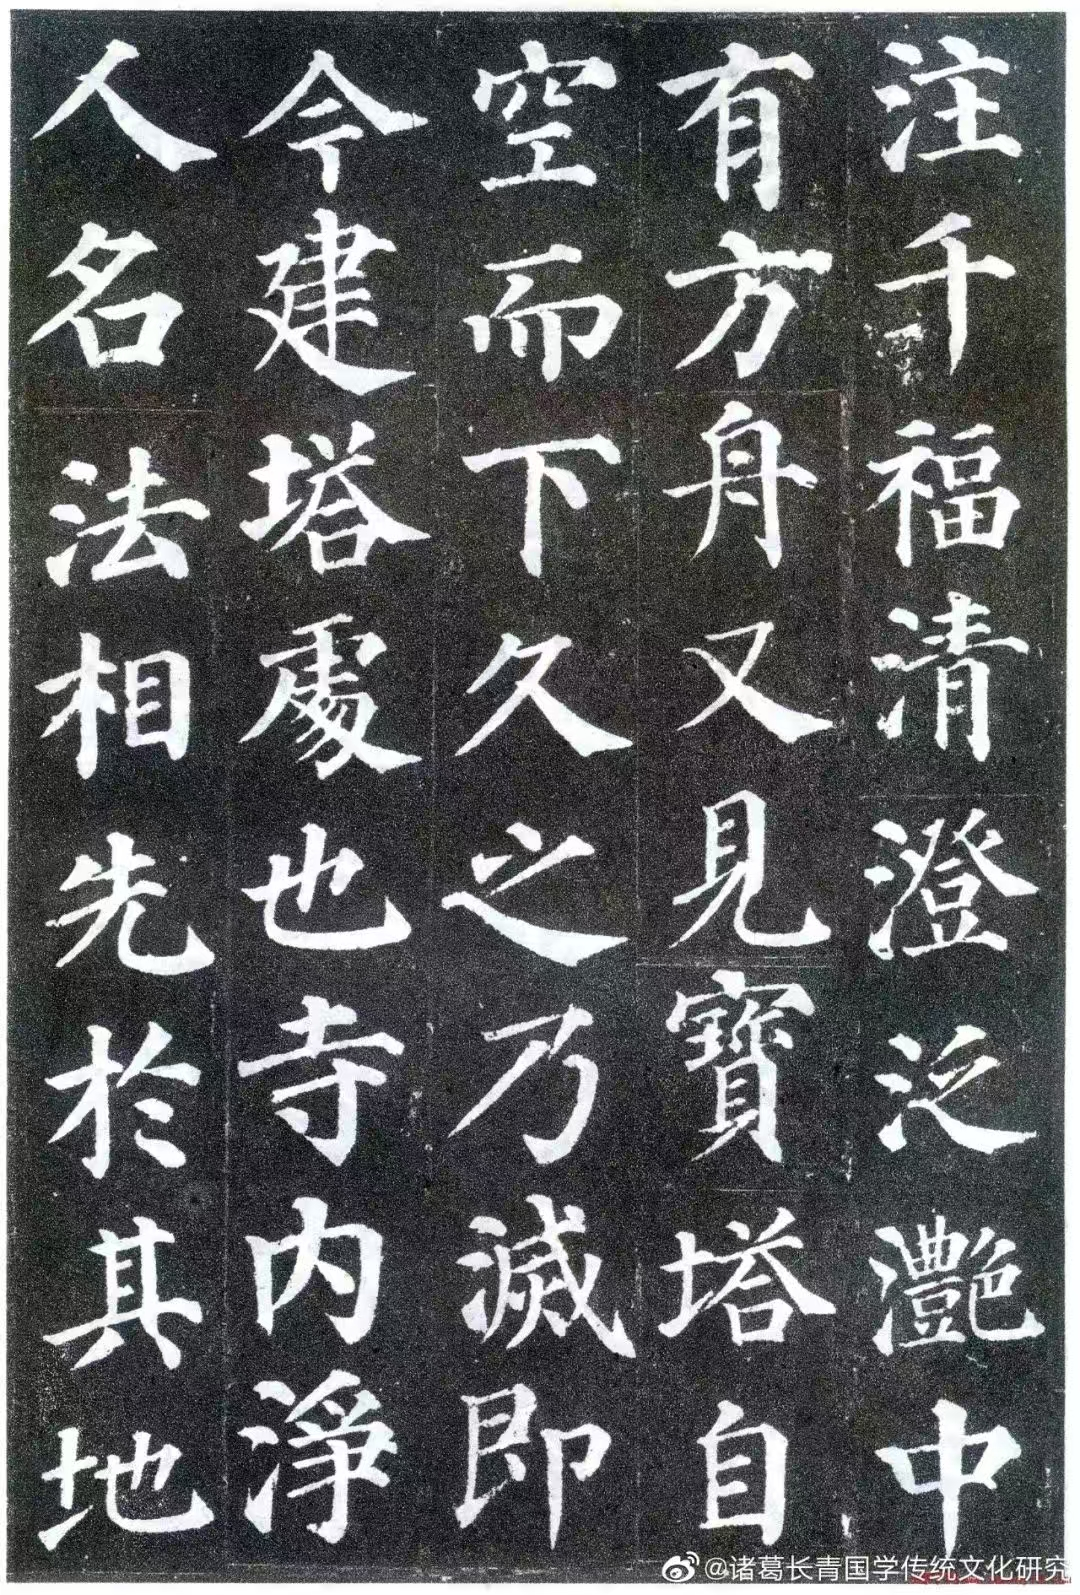 注千福清澄泛灩中
有方舟又見寶塔自
空而下久之乃滅即
今建塔處也寺内淨
人名法相先於其地
@诸葛长青国学传统文化研究